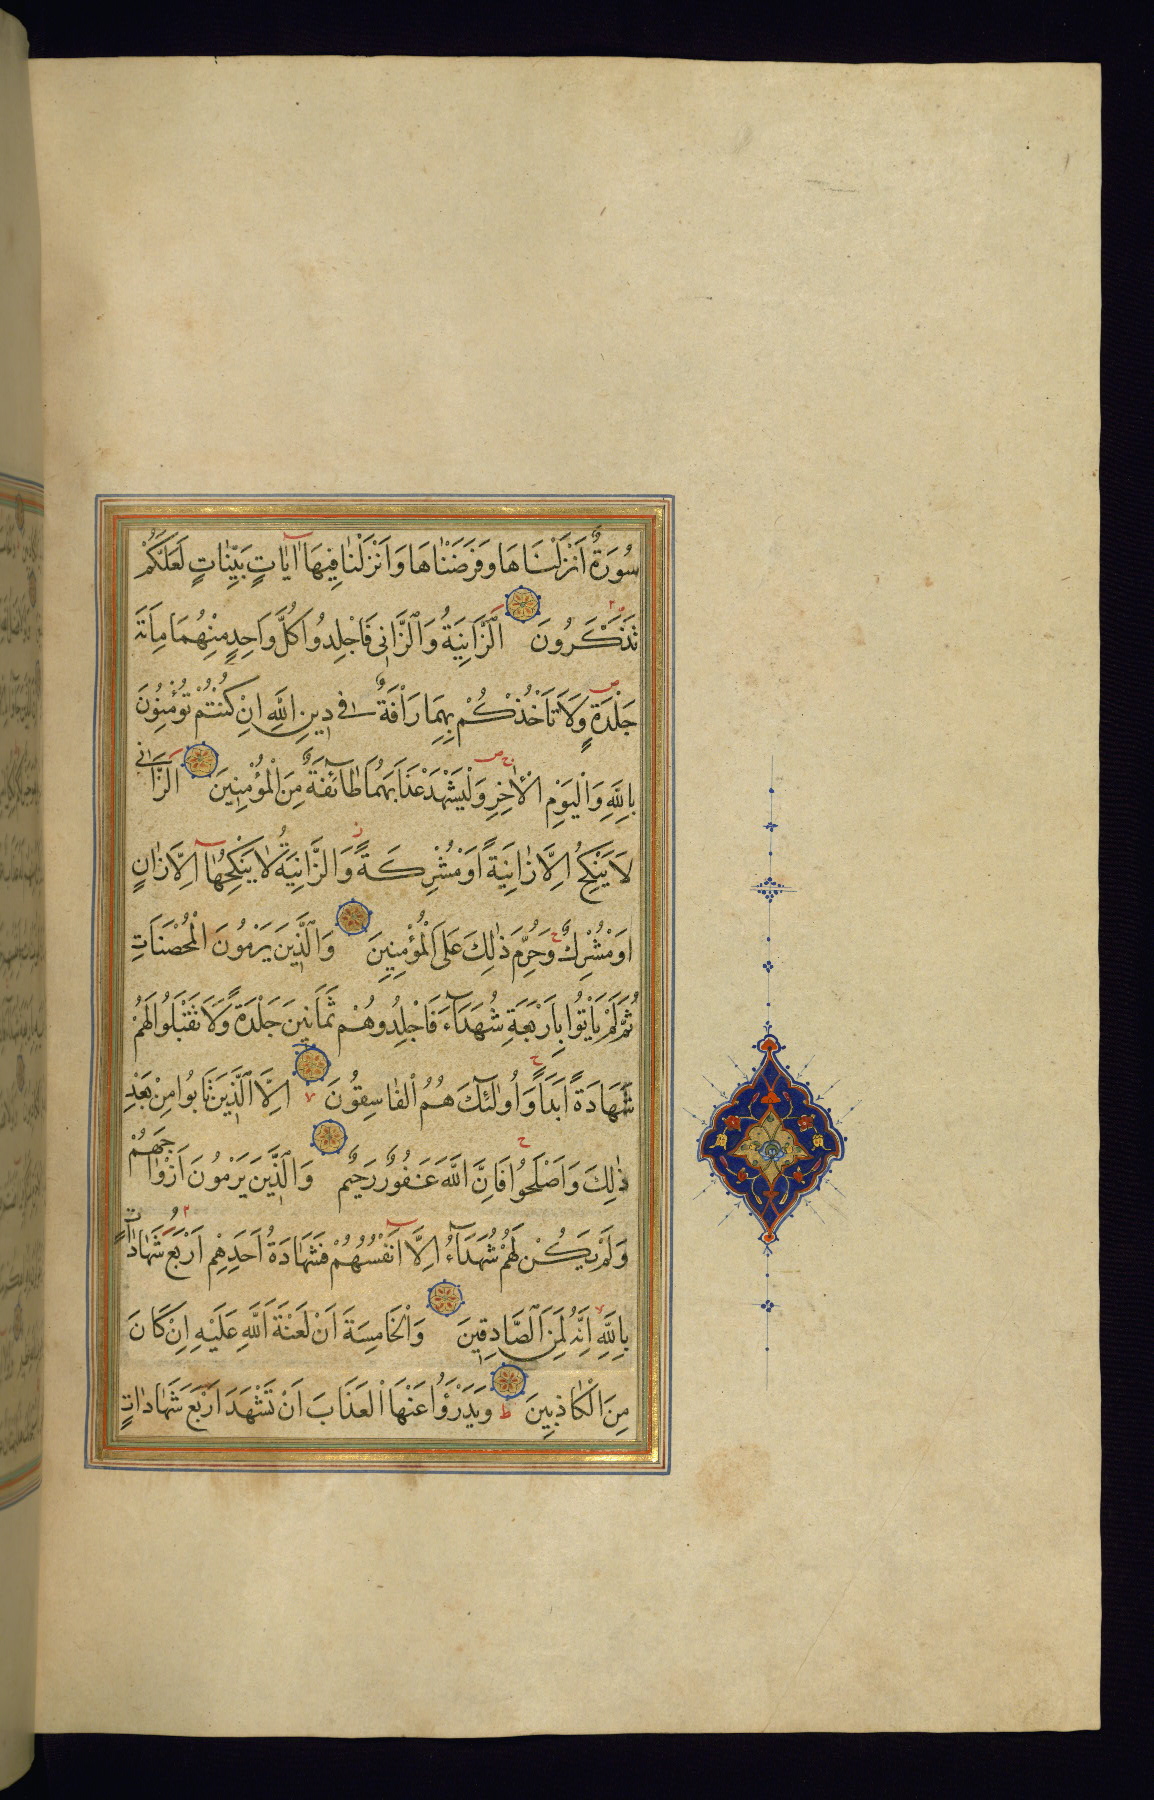 سُورَةٌ اَنْزَلْنَاهَا وَفَرَضْنَاهَا وَاَنْزَلْنَا فِيهَا اٰيَاتٍ بَيِّنَاتٍ لَعَلَّكُمْ
تَذَكَّرُونَ اَلزَّانِيَةُ وَالزَّانِى فَاجْلِدُوا كُلَّ وَاحِدٍ مِنْهُمَا مِائَةَ
جَلْدَةٍ وَلَا تَاْخُذْكُمْ بِهِمَا رَاْفَةٌ فِى دِينِ اللّٰهِ اِنْ كُنْتُمْ تُؤْمِنُونَ
بِاللّٰهِ وَالْيَوْمِ الْاٰخِرِ وَلْيَشْهَدْ عَذَابَهُمَا طَائِفَةٌ مِنَ الْمُؤْمِنِينَ اَلزَّانِى
لَا يَنْكِحُ اِلَّا زَانِيَةً اَوْ مُشْرِكَةً وَالزَّانِيَةُ لَا يَنْكِحُهَا اِلَّا زَانٍ
اَوْ مُشْرِكٌ وَحُرِّمَ ذٰلِكَ عَلَى الْمُؤْمِنِينَ وَالَّذِينَ يَرْمُونَ الْمُحْصَنَاتِ
ثُمَّ لَمْ يَاْتُوا بِاَرْبَعَةِ شُهَدَاءَ فَاجْلِدُوهُمْ ثَمَانِينَ جَلْدَةً وَلَا تَقْبَلُوا لَهُمْ
شَهَادَةً اَبَدًا وَاُولٰئِكَ هُمُ الْفَاسِقُونَ اِلَّا الَّذِينَ تَابُوا مِنْ بَعْدِ
ذٰلِكَ وَاَصْلَحُوا فَاِنَّ اللّٰهَ غَفُورٌ رَحِيمٌ وَالَّذِينَ يَرْمُونَ اَزْوَاجَهُمْ
وَلَمْ يَكُنْ لَهُمْ شُهَدَاءُ اِلَّا اَنْفُسُهُمْ فَشَهَادَةُ اَحَدِهِمْ اَرْبَعُ شَهَادَاتٍ
بِاللّٰهِ اِنَّهُ لَمِنَ الصَّادِقِينَ وَالْخَامِسَةَ اَنْ لَعْنَةَ اللّٰهِ عَلَيْهِ اِنْ كَانَ
مِنَ الْكَاذِبِينَ وَيَدْرَؤُا عَنْهَا الْعَذَابَ اَنْ تَشْهَدَ اَرْبَعَ شَهَادَاتٍ